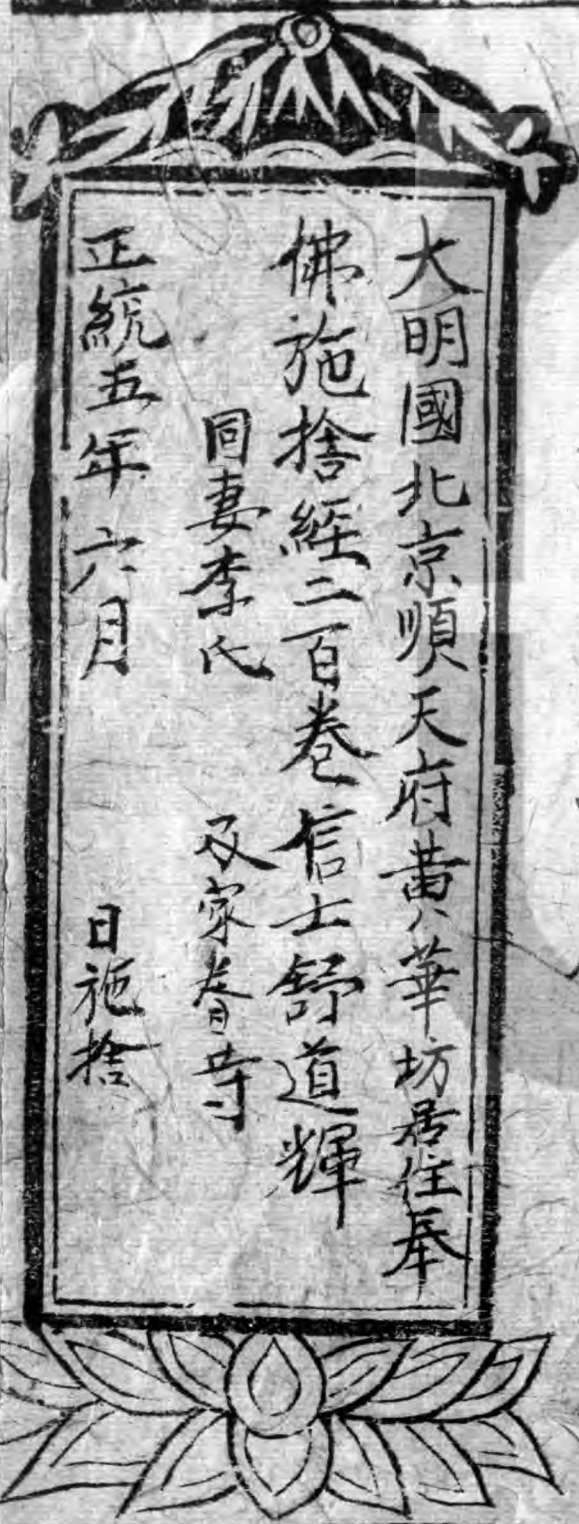 大明國北京順天府黄華坊居住奉
佛施捨經二百卷信士舒道輝
同妻李氏 及家眷等
正統五年六月 日施捨